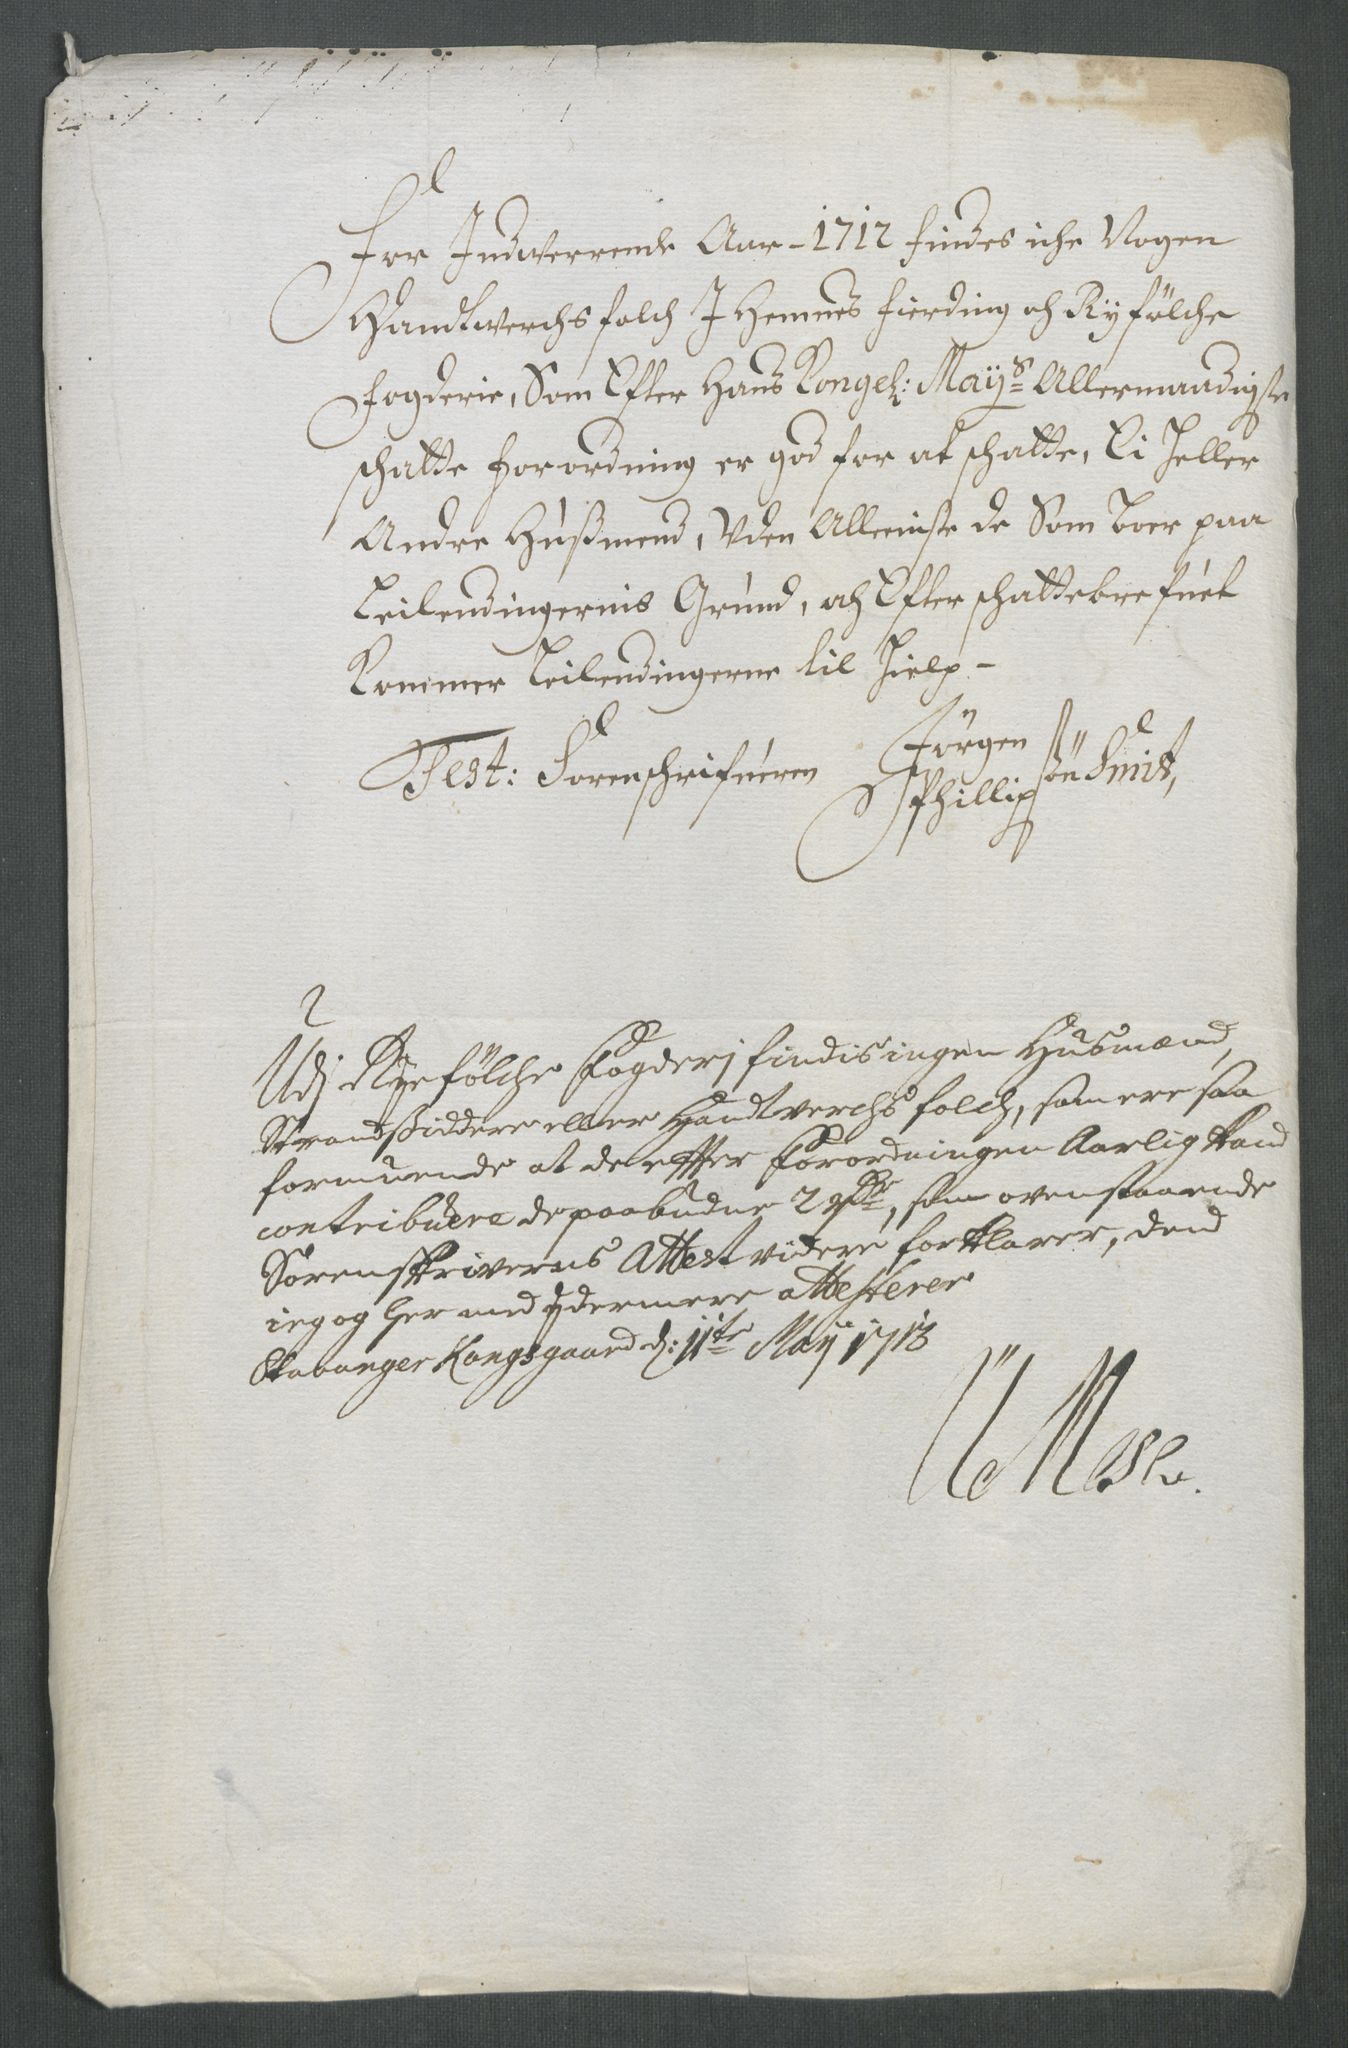 For Indwerrende Aar - 1712 findes iche Nogen
Handtwerchsfolch J Hemnes fierding och Ryfølche
fogderie, Som Efter Hans Kongel: Mayˢ Allernaadigste
schatte forordning er god for at schatte, Ei heller
Andre Husmend, Uden Alleniste de Som boer paa
Leilendingernis Grund, och Efter schattebrefuet
Kommer Leilendingerne til Hielp -
Test: Sorenschrifueren Jørgen Phillipsøn Smit,
2
Udj Ryefølche Fogderj findis ingen Husmænd,
Strandsiddere eller Handtverchs folch, som ere saa
formuende at de effter Forordningen Aarlig kand
contribuere de paabudne 2, som ovenstaaende
Sorenskriverens Attest videre forklarer, dend
ieg og her med ydermere attesterer
Stavanger Kongsgaard d: 11te Maij 1713